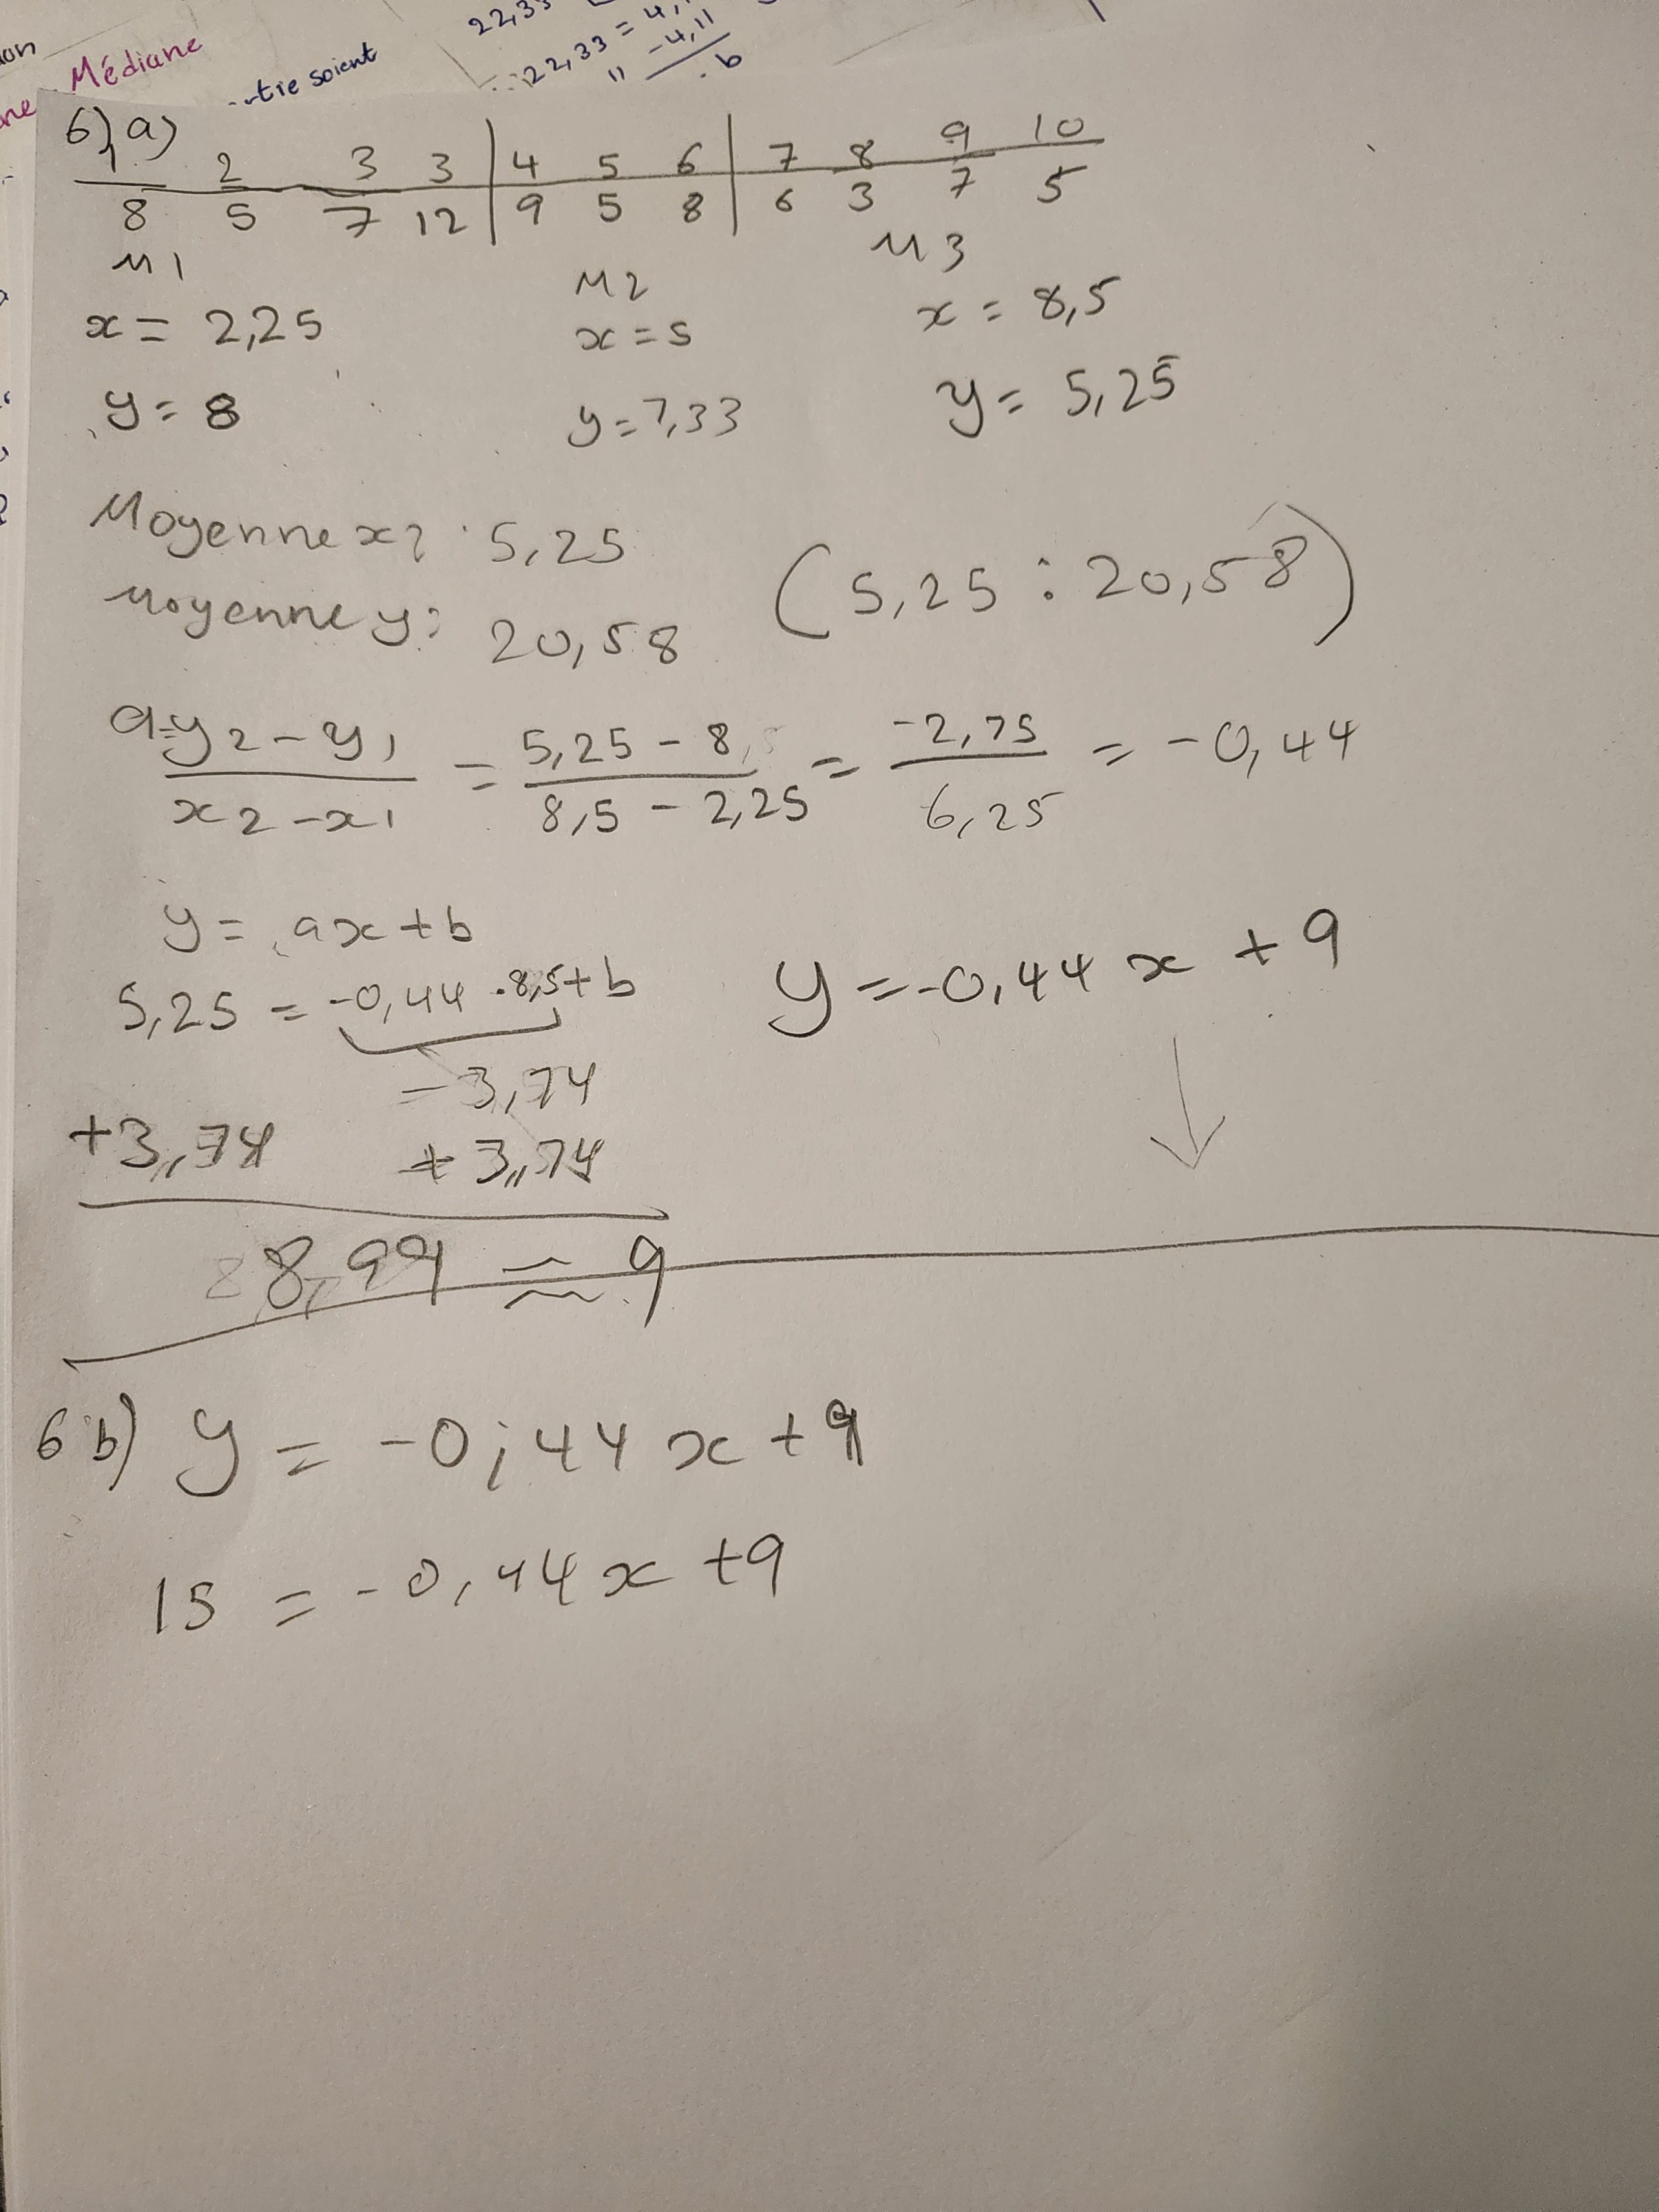 on
Médiane
ne
rtie soient
22,33
22,33 = 4,
-4,11
b
6) a)
1 2 3 3 | 4 5 6 | 7 8 9 10
8 5 7 12 | 9 5 8 | 6 3 7 5
M1 M2 M3
x = 2,25 x = 5 x = 8,5
y = 8 y = 7,33 y = 5,25
Moyenne x: 5,25
Moyenne y: 20,58 (5,25 : 20,58)
a = y2 - y1 / x2 - x1 = 5,25 - 8 / 8,5 - 2,25 = -2,75 / 6,25 = -0,44
y = ax + b
5,25 = -0,44 · 8,5 + b y = -0,44 x + 9
-3,74
+3,74 +3,74
8,99 ≈ 9
6 b) y = -0,44 x + 9
15 = -0,44 x + 9